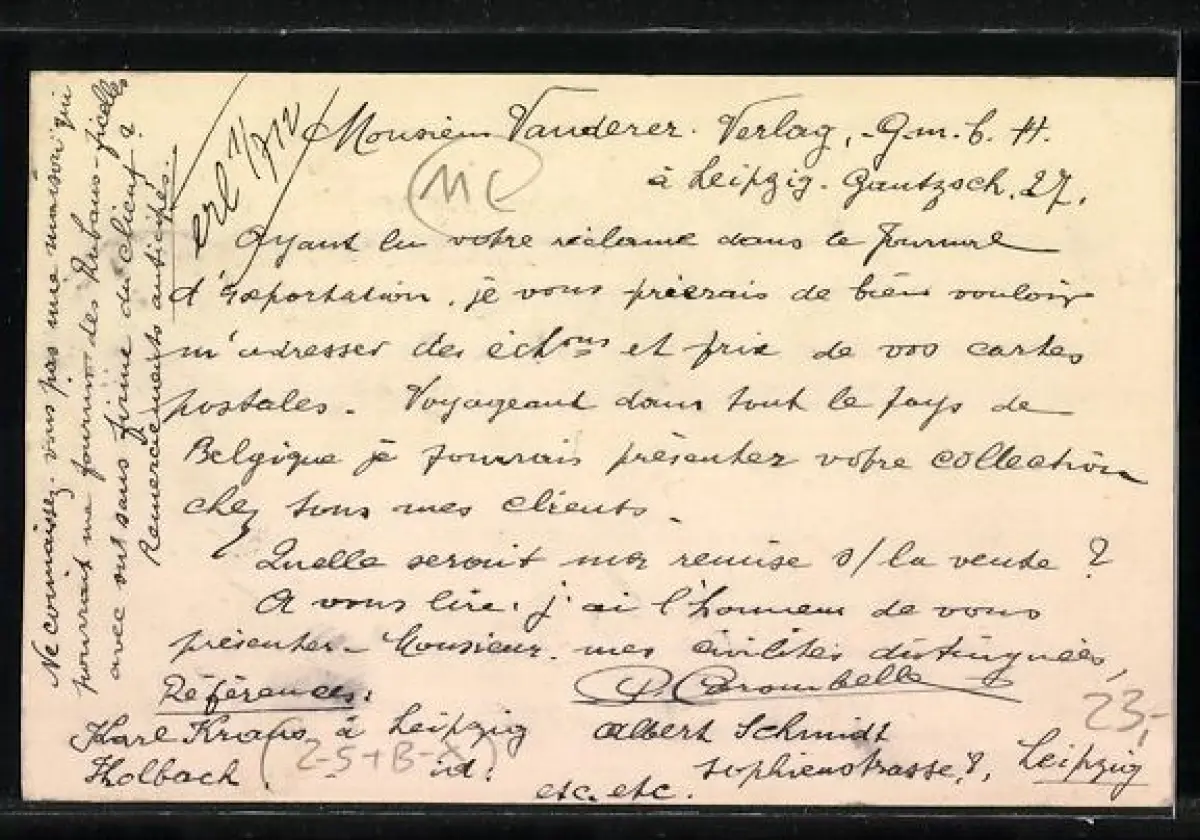 Monsieur Vanderer. Verlag, G.m.b.H.
à Leipzig. Gautzsch. 27.
Ayant lu votre réclame dans le Journal
d'exportation, je vous prierais de bien vouloir
m'adresser des échons et prix de vos cartes
postales. Voyageant dans tout le pays de
Belgique je pourrais présenter votre collection
chez tous mes clients.
Quelle serait ma remise s/ la vente ?
A vous lire, j'ai l'honneur de vous
présenter Monsieur mes civilités distinguées,
P. Carombelle
Références:
Karl Kraus à Leipzig
Holbach id:
Albert Schmidt
Sophienstrasse 8, Leipzig
etc. etc.
Ne connaissez-vous pas une maison qui
pourrait me fournir des Rubans-fidelles
avec ou sans firme du client ?
Remerciements anticipés.
erl 1/712
23,-